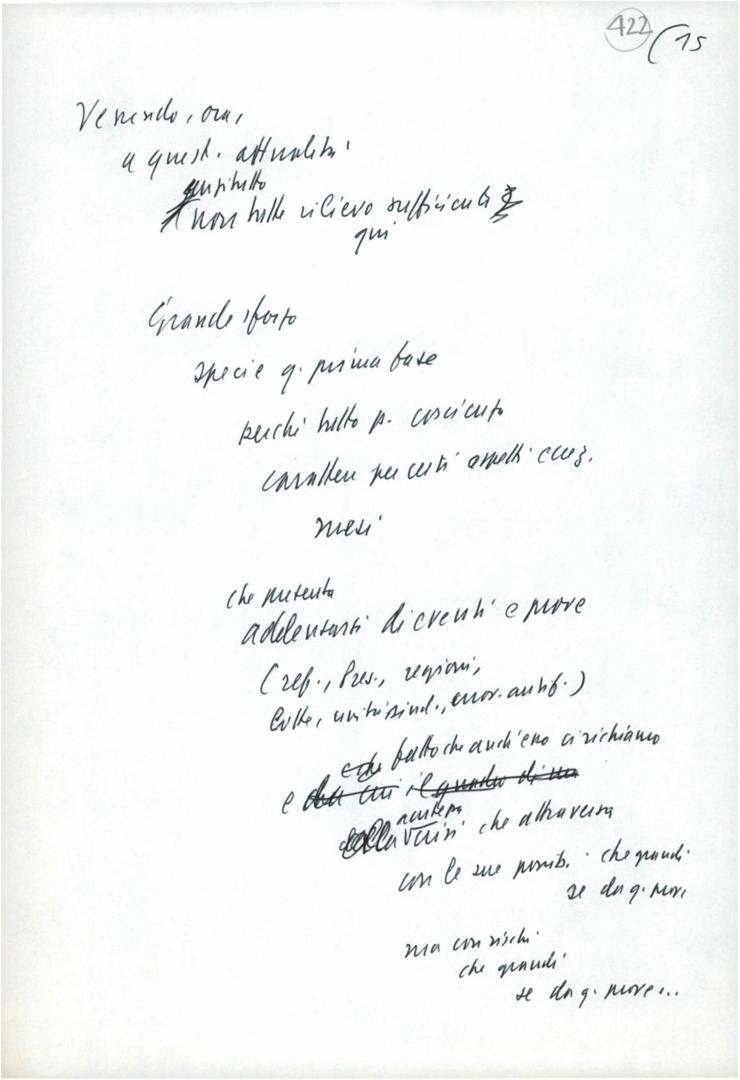 422
( 15
Venendo, ora,
a quest. attualità
anzitutto
non tutte rilievo sufficiente
qui
Grande sforzo
specie q. prima fase
perché tutto p. cosciente
carattere per certi aspetti eccez.
mesi
che presenta
addensarsi di eventi e prove
(ref., Pres., regioni,
lotte, unità sind., antif.)
fatto che anch'esso ci richiamo
e da cui il quadro di un
della crisi che attraversa
con le sue possib. che grandi
se da q. prove
ma con rischi
che grandi
se da q. prove...